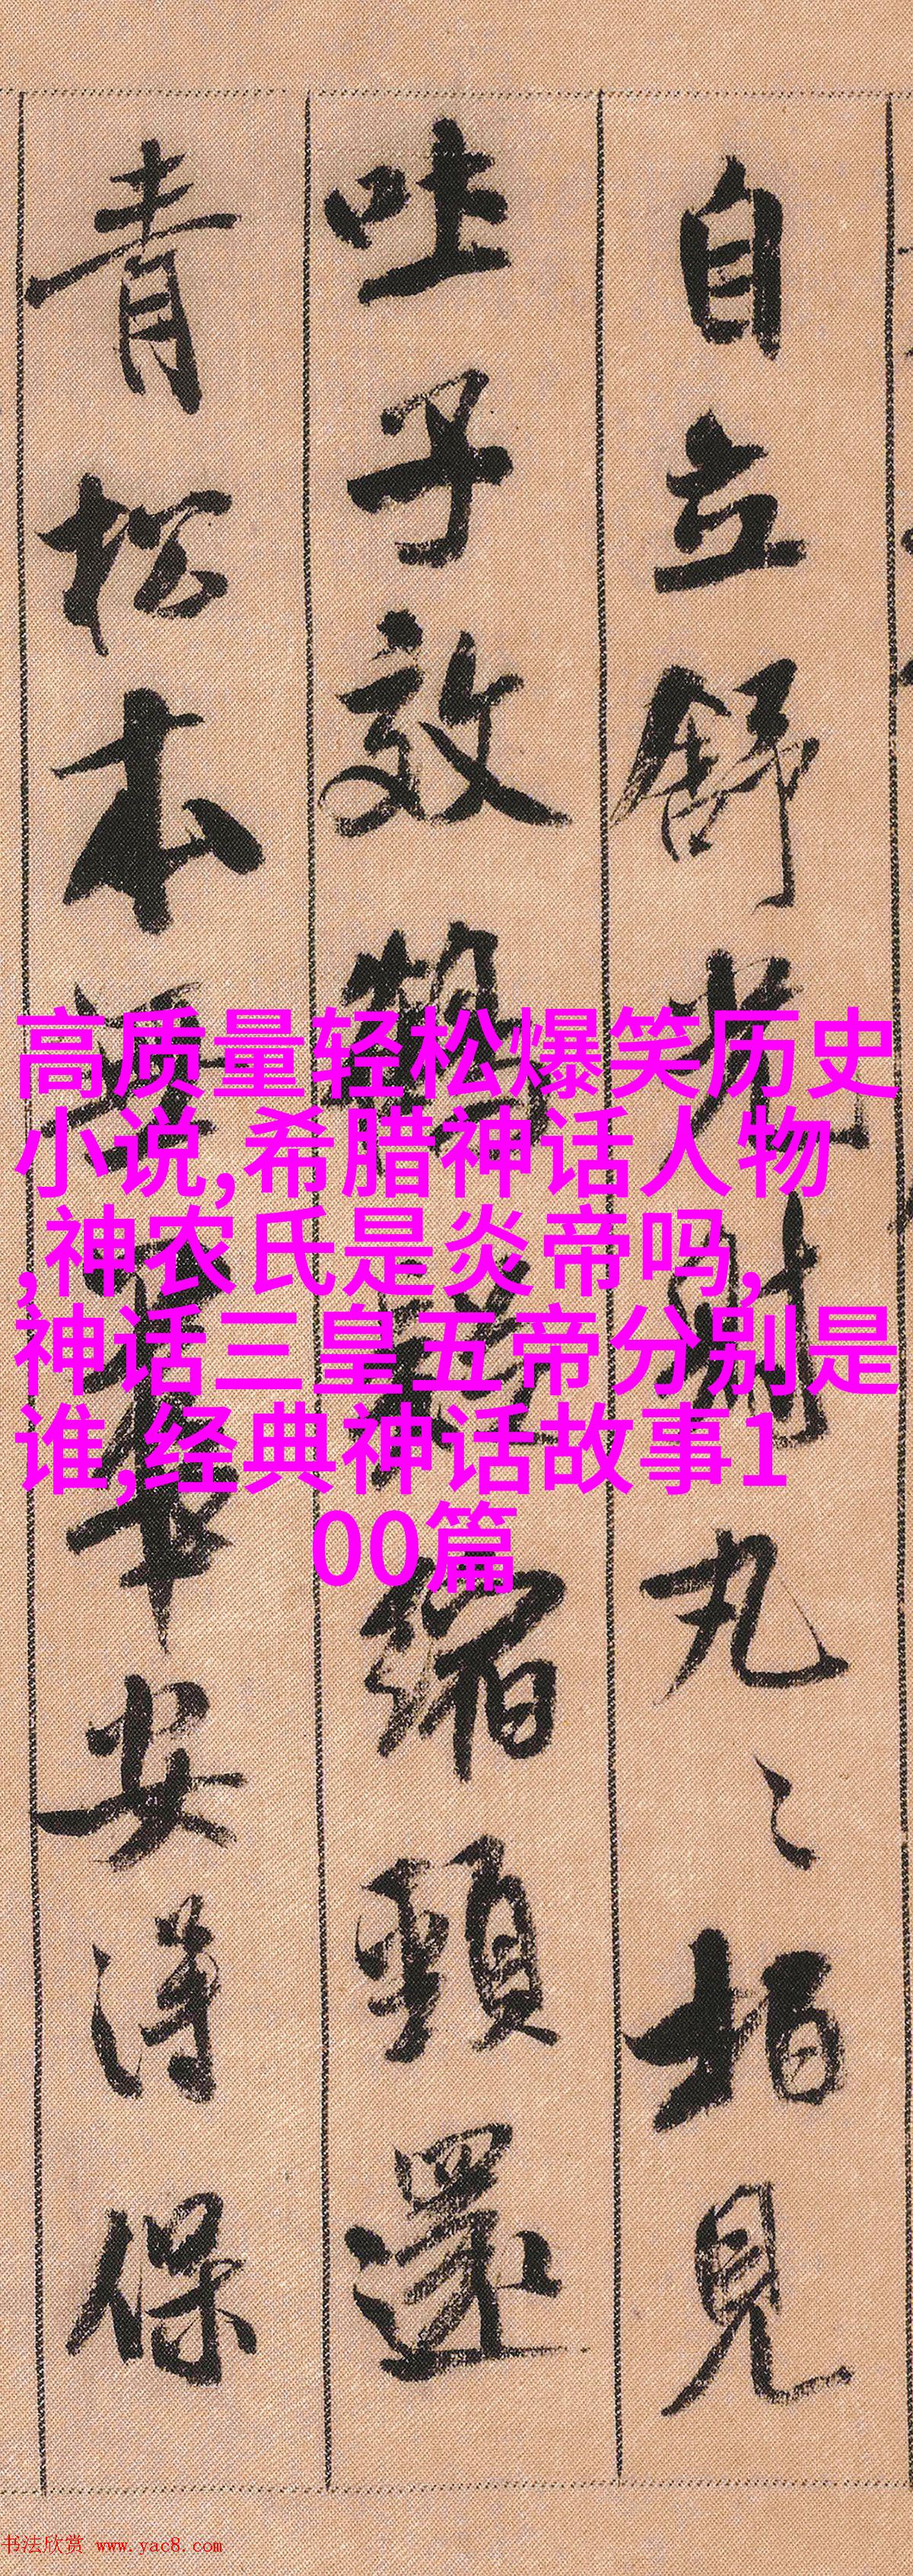 自立舒光射丸〻柏見
吐子效鸎縮頸還
青松本無華安得保
高质量轻松爆笑历史
小说,希腊神话人物
,神农氏是炎帝吗,
神话三皇五帝分别是
谁,经典神话故事1
00篇
书法欣赏 www.yac8.com